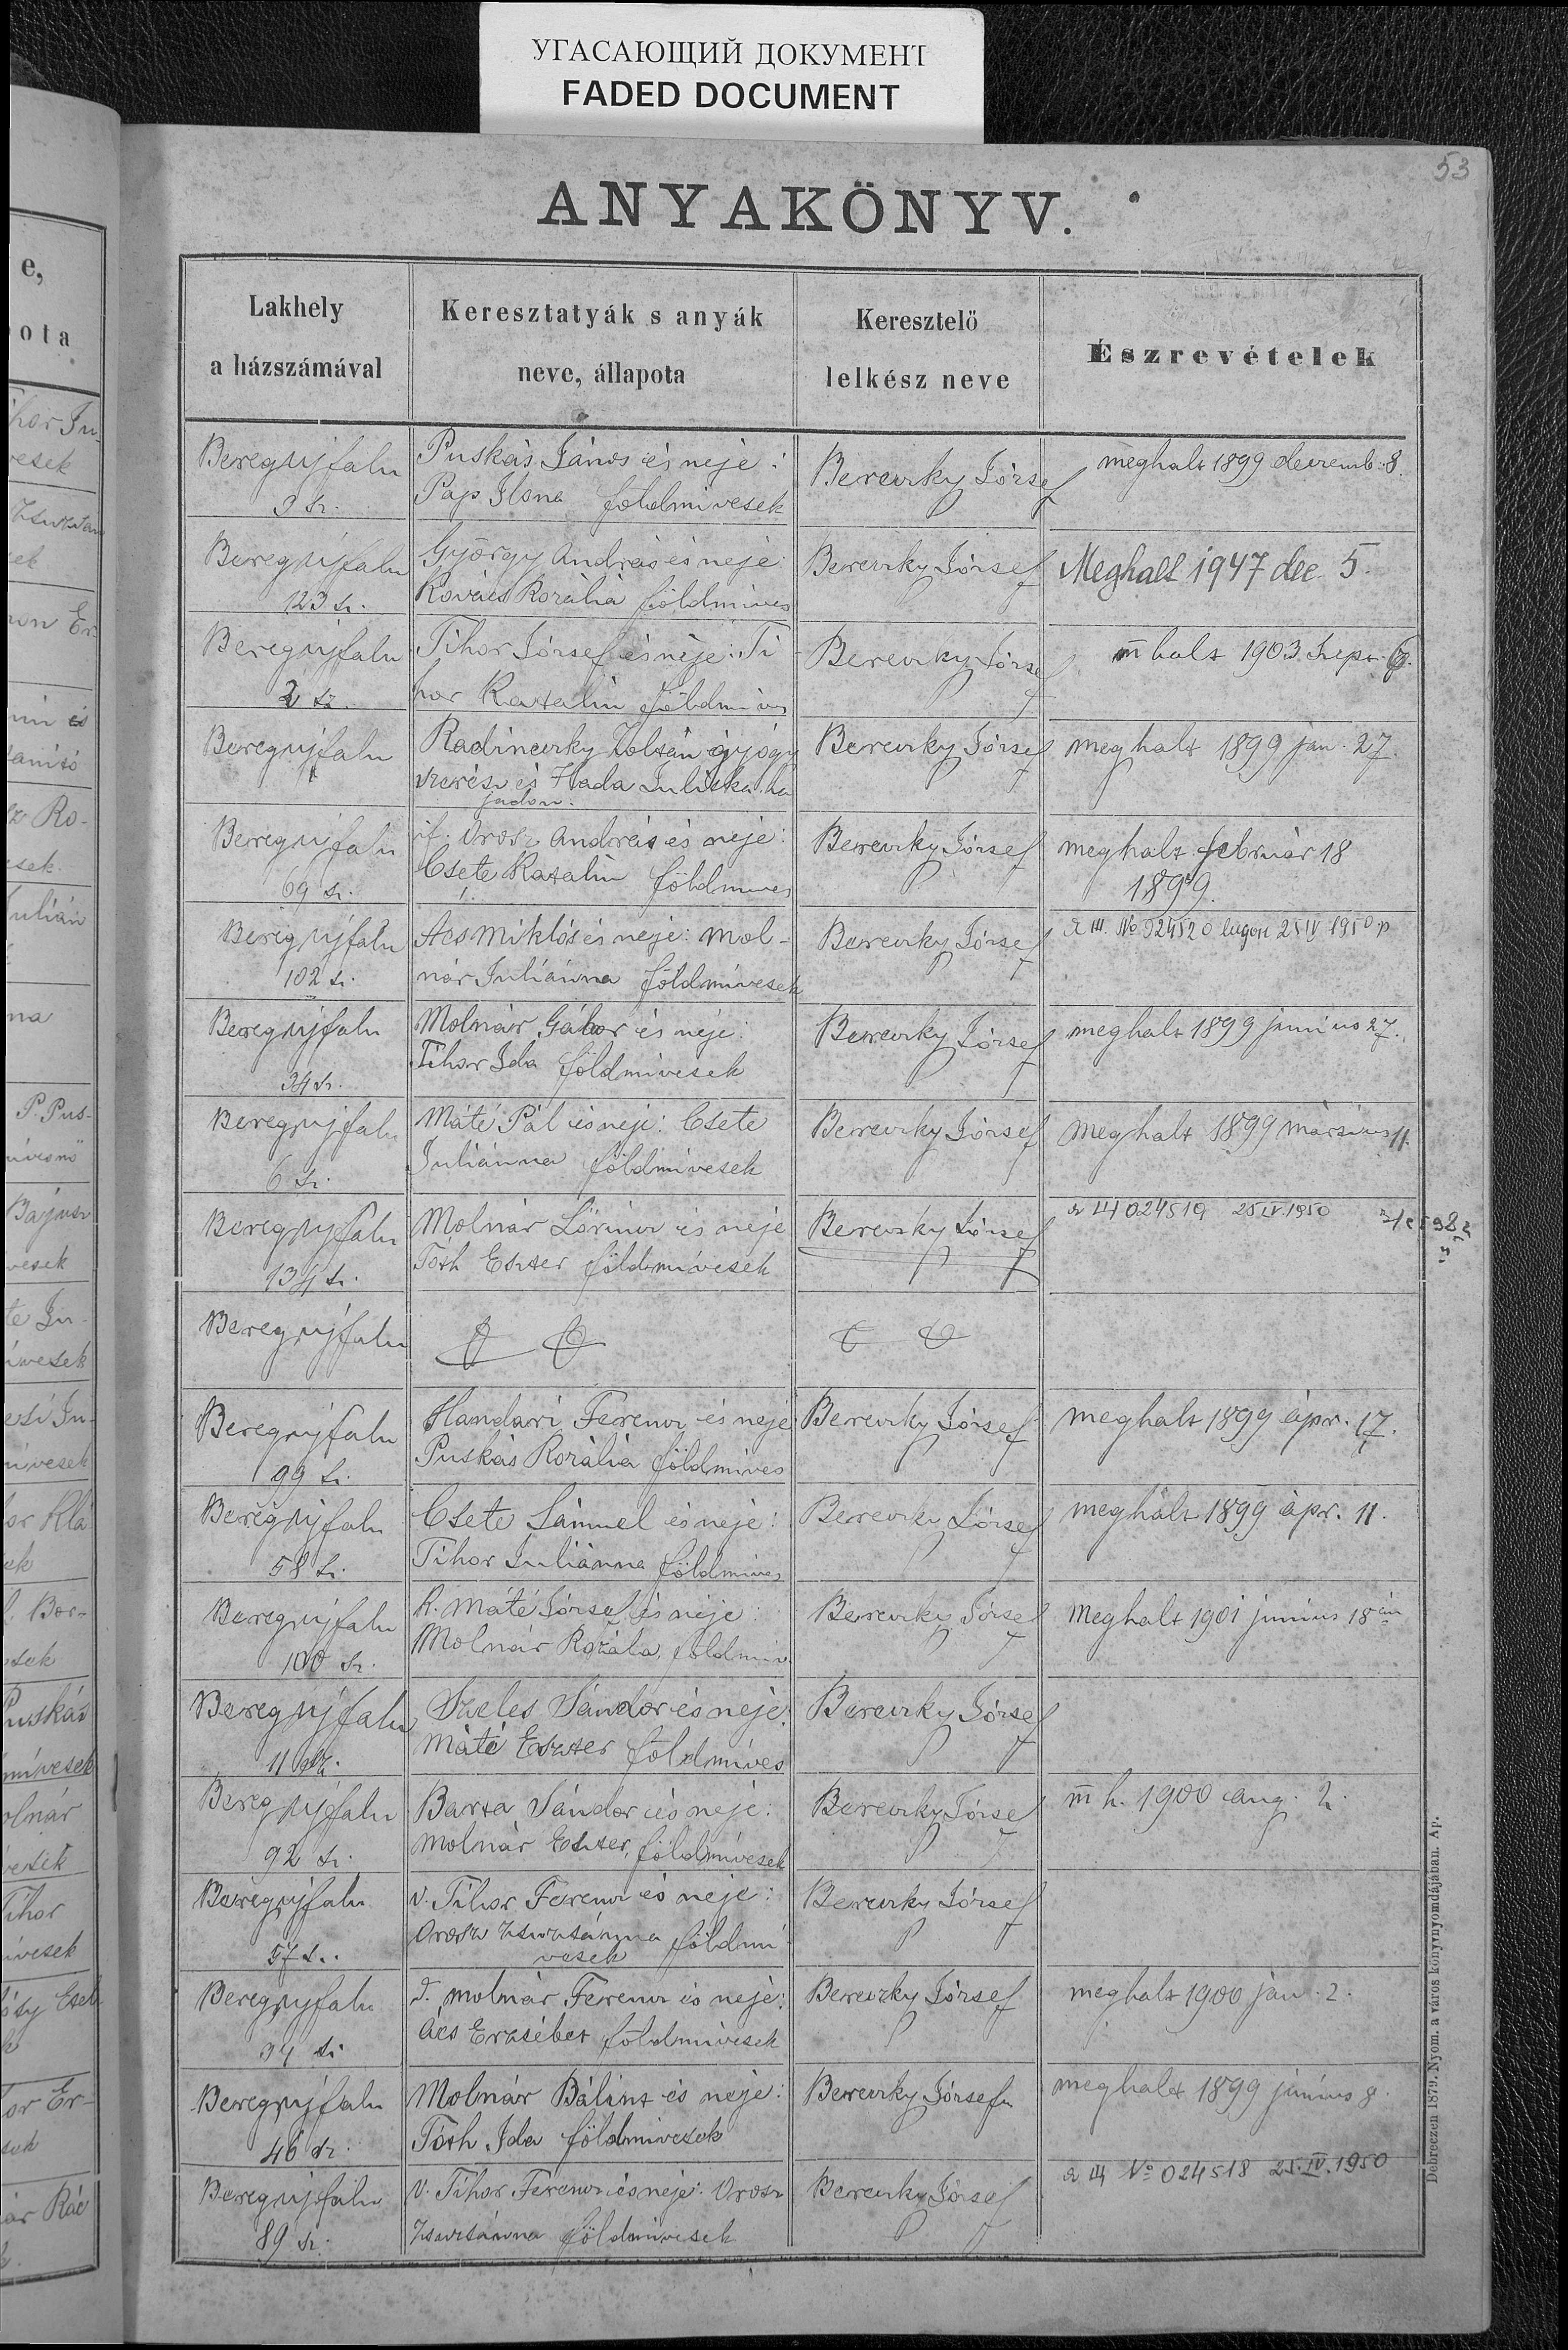 УГАСАЮЩИЙ ДОКУМЕНТ
FADED DOCUMENT
53
ANYAKÖNYV.
Lakhely
a házszámával
Keresztatyák s anyák
neve, állapota
Keresztelő
lelkész neve
Észrevételek
Beregujfalu
9 sz.
Puskás János és neje:
Pap Ilona földmivesek
Bereczky József
meghalt 1899 decemb. 8.
Beregujfalu
123 sz.
György András és neje:
Kovács Rozália földmives
Bereczky József
Meghalt 1947 dec. 5.
Beregujfalu
2 sz.
Tihor József és neje: Ti
hor Katalin földmives
Bereczky József
m halt 1903 Szept. 6.
Beregujfalu
Radineczky Zoltán gyógy
szerész és Hada Juliska ha
jadon.
Bereczky József
meghalt 1899 jan. 27.
Beregujfalu
69 sz.
if. Orosz András és neje:
Csete Katalin földmives
Bereczky József
meghalt február 18
1899.
Beregujfalu
102 sz.
Acs Miklós és neje: Mol-
nár Juliánna földmivesek
Bereczky József
No 024520 25 IV 1950 p
Beregujfalu
34 sz.
Molnár Gábor és neje:
Tihor Ida földmivesek
Bereczky József
meghalt 1899 junius 27.
Beregujfalu
6 sz.
Máté Pál és neje: Csete
Juliánna földmivesek
Bereczky József
meghalt 1899 márczius 11.
Beregujfalu
134 sz.
Molnár Lőrincz és neje
Tóth Eszter földmivesek
Bereczky József
024519 25 IV 1950
Beregujfalu
Beregujfalu
99 sz.
Handari Ferencz és neje
Puskás Rozália földmives
Bereczky József
meghalt 1899 ápr. 17.
Beregujfalu
58 sz.
Csete Sámuel és neje:
Tihor Juliánna földmives
Bereczky József
meghalt 1899 ápr. 11.
Beregujfalu
100 sz.
K. Máté József és neje:
Molnár Rozála földmiv
Bereczky József
Meghalt 1901 junius 18án
Beregujfalu
11 sz.
Szeles Sándor és neje:
Máté Eszter földmives
Bereczky József
Beregujfalu
92 sz.
Barta Sándor és neje:
Molnár Eszter, földmivesek
Bereczky József
m h. 1900 aug. 2.
Beregujfalu
57 sz.
V. Tihor Ferencz és neje:
Orosz Zsuzsánna földmi
vesek
Bereczky József
Beregujfalu
94 sz.
T. Molnár Ferencz és neje:
Acs Erzsébet földmivesek
Bereczky József
meghalt 1900 jan. 2.
Beregujfalu
46 sz.
Molnár Bálint és neje:
Tóth Ida földmivesek
Bereczky József
meghalt 1899 junius 8.
Beregujfalu
89 sz.
V. Tihor Ferencz és neje: Orosz
Zsuzsánna földmivesek
Bereczky József
No 024518 25.IV.1950
Debreczen 1879. Nyom. a város könyvnyomdájában. Ap.